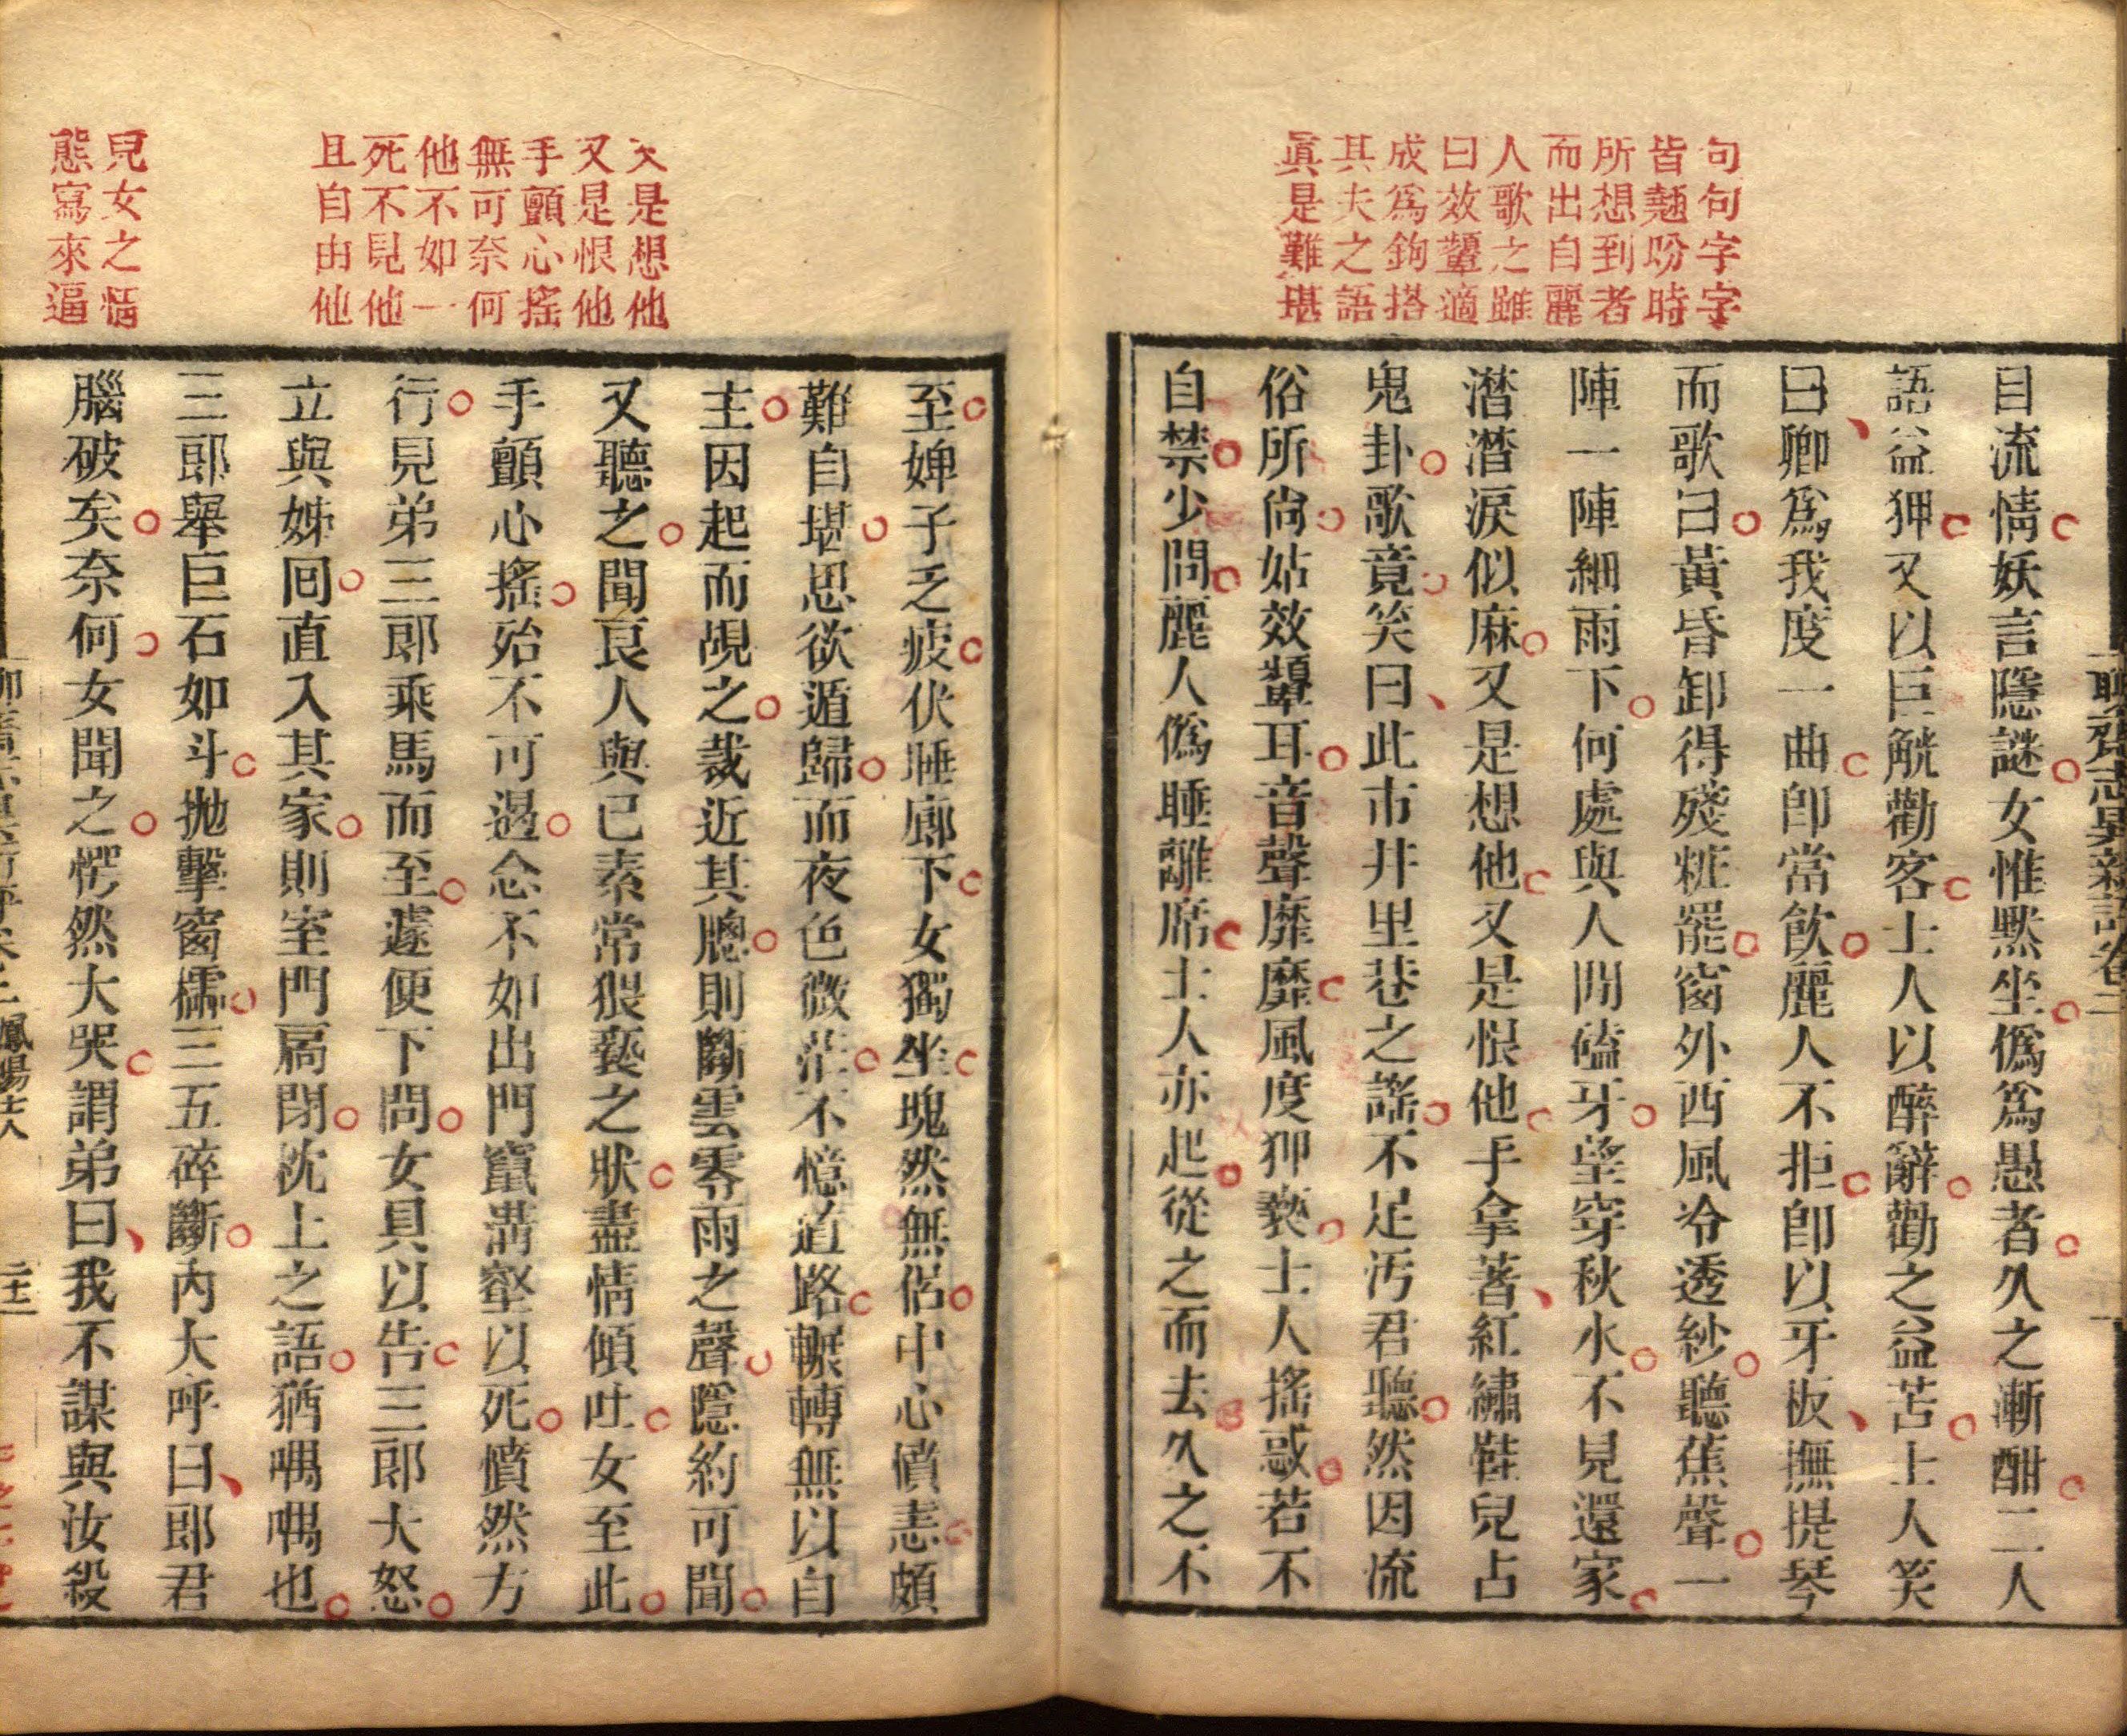 句句字字
皆翹盼時
所想到者
而出自麗
人歌之雖
曰效顰適
成爲鉤搭
其夫之語
眞是難堪
目流情妖言隱謎女惟默坐僞爲愚者久之漸酣二人
語益狎又以巨觥勸客士人以醉辭勸之益苦士人笑
曰卿爲我度一曲卽當飮麗人不拒卽以牙板撫提琴
而歌曰黃昏卸得殘粧罷窗外西風冷透紗聽蕉聲一
陣一陣細雨下何處與人閒磕牙望穿秋水不見還家
潸潸淚似麻又是想他又是恨他手拿著紅繡鞋兒占
鬼卦歌竟笑曰此市井里巷之謠不足汚君聽然因流
俗所尙姑效顰耳音聲靡靡風度狎褻士人搖惑若不
自禁少間麗人僞睡離席士人亦起從之而去久之不
又是想他
又是恨他
手顫心搖
無可奈何
他不如一
死不見他
且自由他
兒女之情
態寫來逼
至婢子乏疲伏睡廊下女獨坐塊然無侶中心憤恚頗
難自堪思欲遁歸而夜色微茫不憶道路輾轉無以自
主因起而覘之裁近其牕則斷雲零雨之聲隱約可聞
又聽之聞良人與已素常猥褻之狀盡情傾吐女至此
手顫心搖殆不可遏念不如出門竄溝壑以死憤然方
行見弟三郞乘馬而至遽便下問女具以告三郞大怒
立與姊回直入其家則室門扃閉枕上之語猶喁喁也
三郞舉巨石如斗抛擊窗櫺三五碎斷內大呼曰郞君
腦破矣奈何女聞之愕然大哭謂弟曰我不謀與汝殺
鳳陽士人